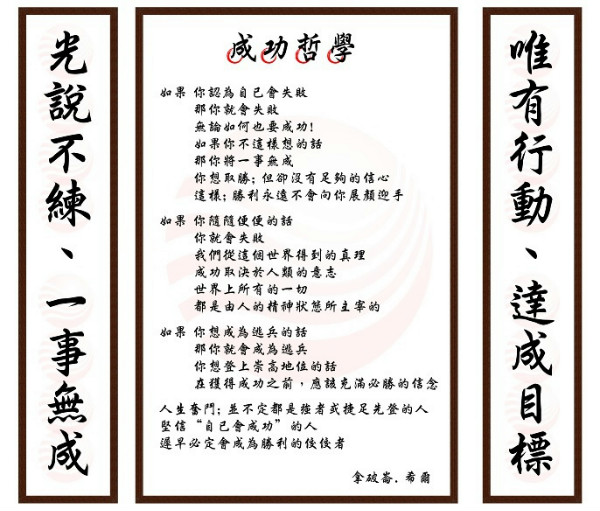 光說不練、一事無成
成功哲學
如果 你認為自己會失敗
那你就會失敗
無論如何也要成功!
如果你不這樣想的話
那你將一事無成
你想取勝; 但卻沒有足夠的信心
這樣; 勝利永遠不會向你展顏迎手
如果 你隨隨便便的話
你就會失敗
我們從這個世界得到的真理
成功取決於人類的意志
世界上所有的一切
都是由人的精神狀態所主宰的
如果 你想成為逃兵的話
那你就會成為逃兵
你想登上崇高地位的話
在獲得成功之前，應該充滿必勝的信念
人生奮鬥; 並不定都是強者或捷足先登的人
堅信 "自己會成功" 的人
遲早必定會成為勝利的佼佼者
拿破崙. 希爾
唯有行動、達成目標